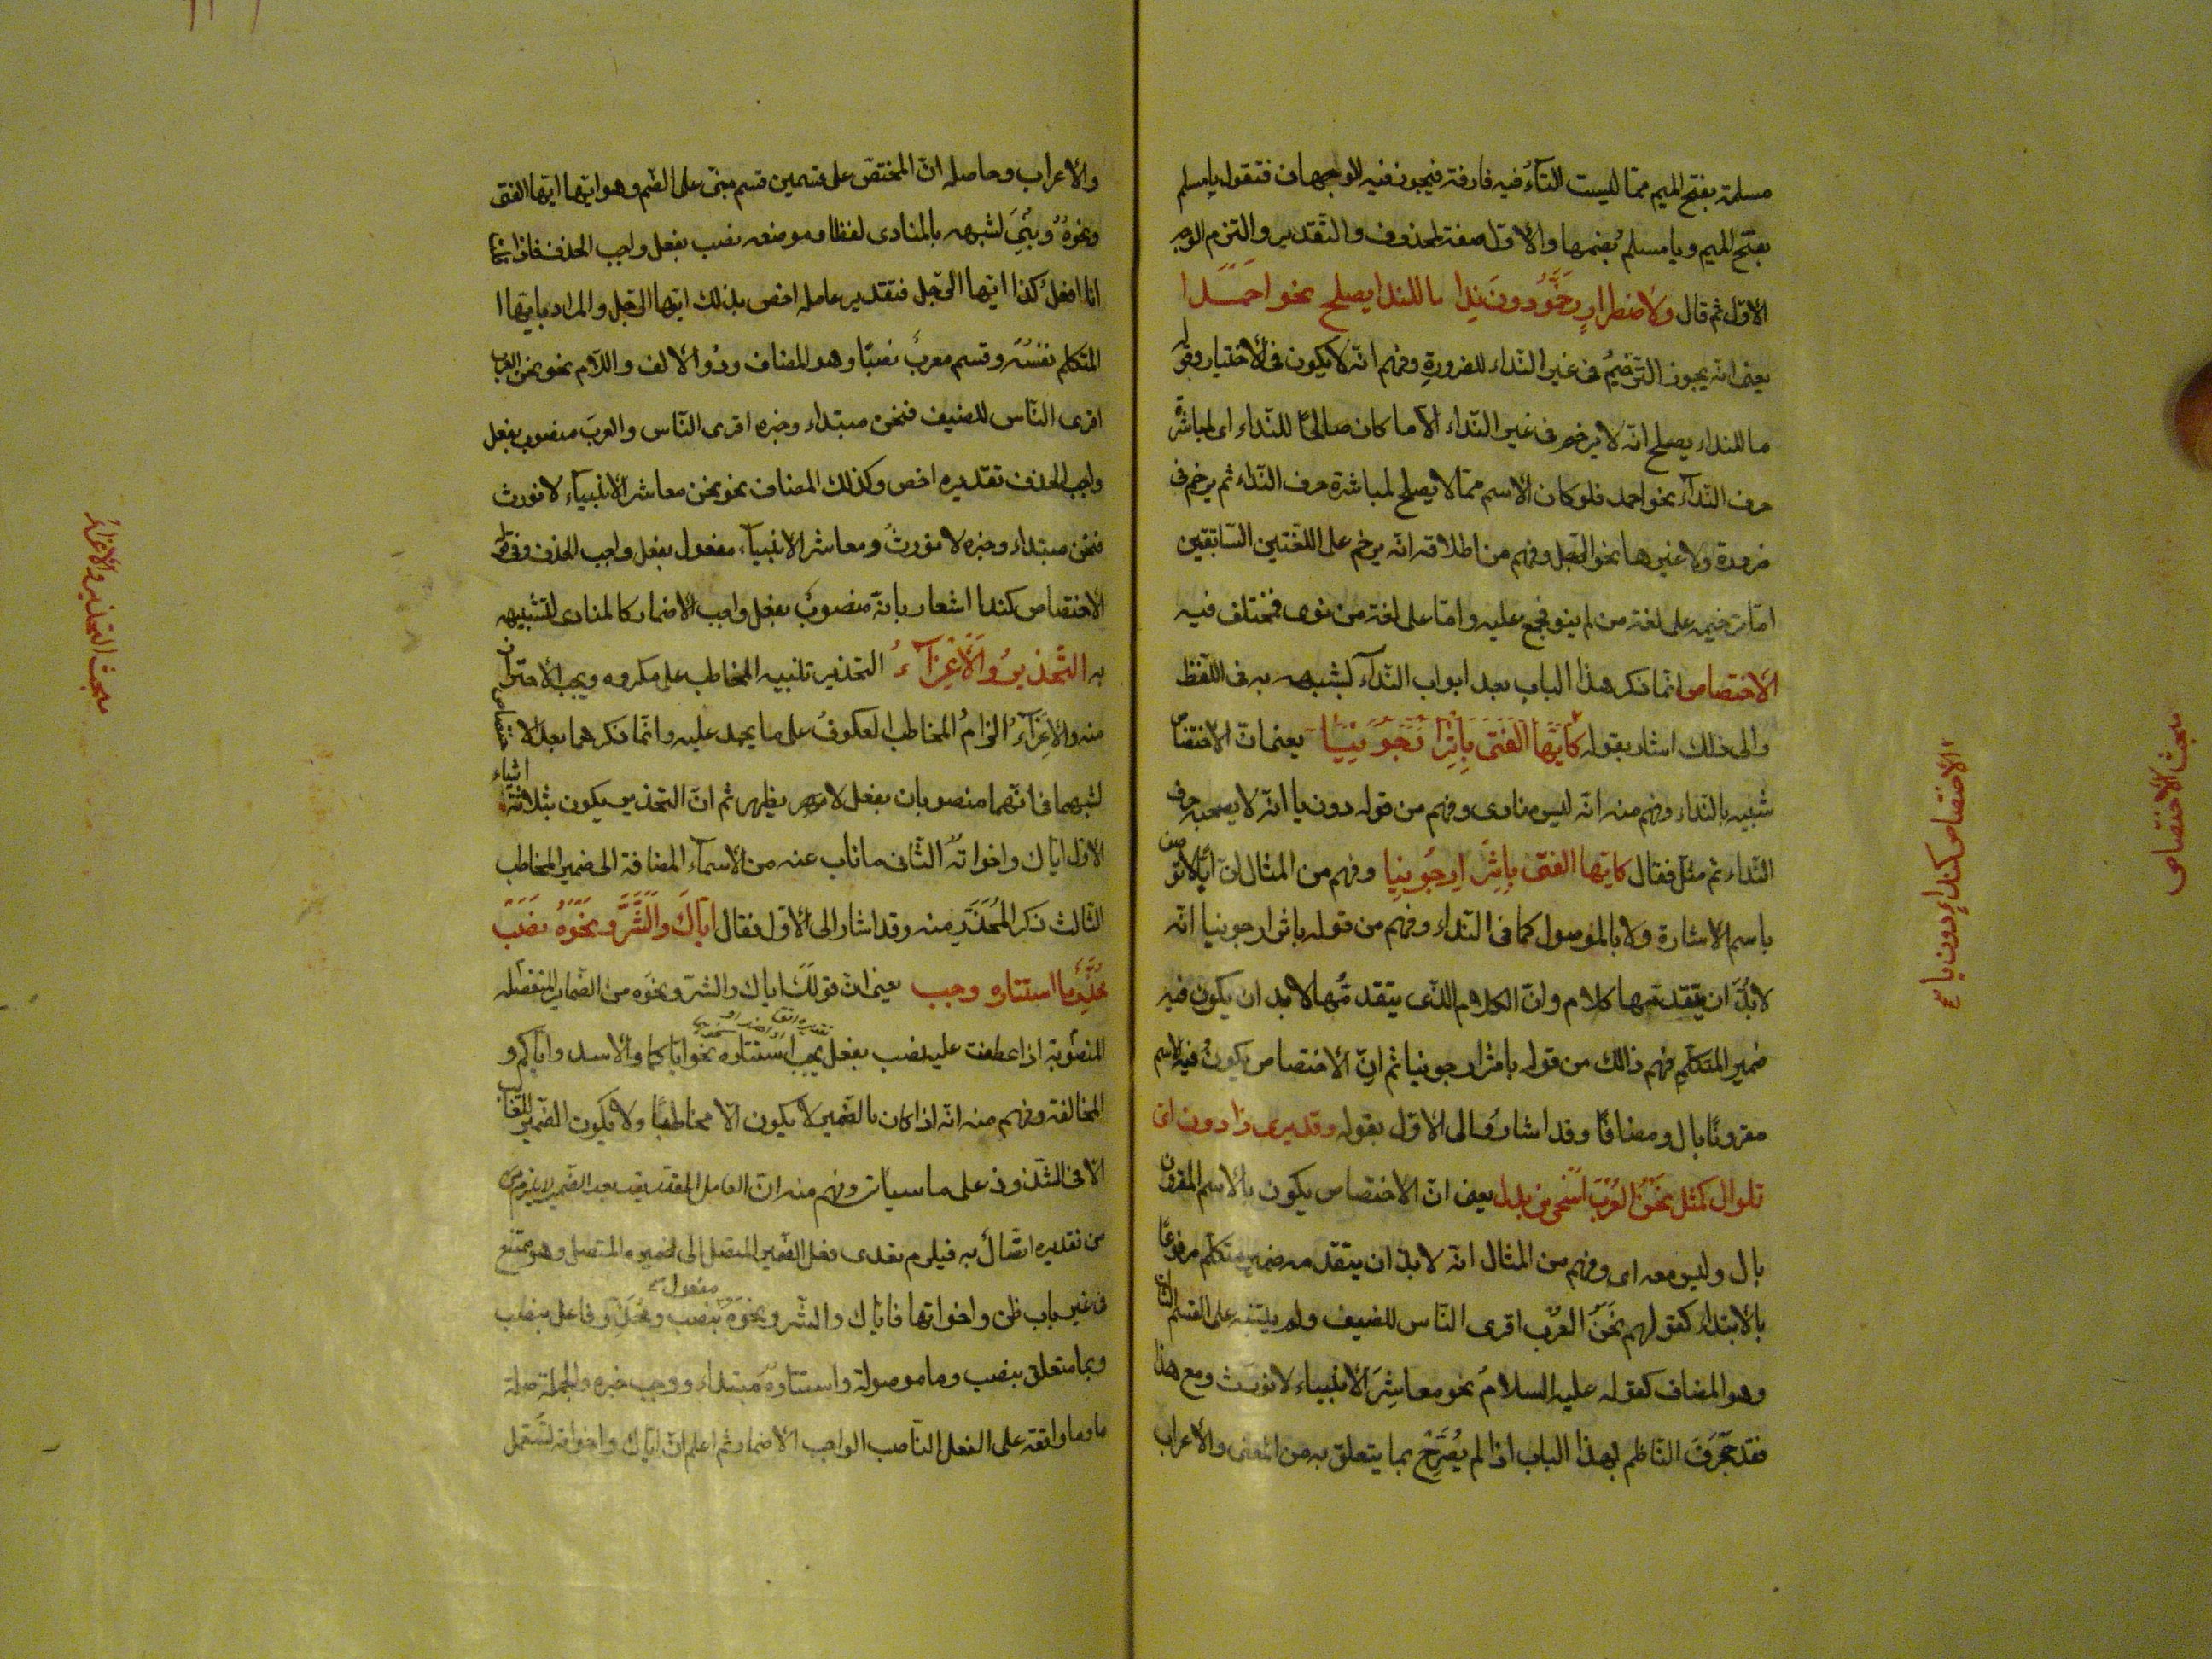 مسلمة بفتح الميم مما ليست التآء فيه فارقة فيجوز فيه الوجهان فتقول يا مسلم
بفتح الميم ويا مسلم بضمها والاوّل صفة لمحذوف والتقدير والتزم الوجه
الاوّل ثم قال ولاضطرار رخّموا دون ندا ما للندا يصلح نحو احمدا
يعنى انه يجوز الترخيم فى غير النداء للضرورة وفهم انه لا يكون فى الاختيار وقوله
ما للنداء يصلح انه لا يرخم فى غير النداء الا ما كان صالحا للنداء اى لمباشرة
حرف الندآء نحو احمد فلو كان الاسم مما لا يصلح لمباشرة حرف النداء ثم يرخم فى
ضرورة ولا غيرها نحو الرجل وفهم من اطلاقه انه يرخم على اللغتين السابقتين
امّا ترخيمه على لغة من لم ينو فمجمع عليه وامّا على لغة من نوى فمختلف فيه
الاختصاص انما ذكر هذا الباب بعد ابواب الندآء لشبهه به فى اللفظ
والى ذلك اشار بقوله كايّها الفتى باثر ارجونيا يعنى ان الاختصاص
شبيه بالنداء وفهم منه انه ليس منادى وفهم من قوله دون يا انه لا يصحبه حرف
النداء ثم مثّل فقال كايّها الفتى باثر ارجونيا وفهم من المثال ان ايّا لا توصف
باسم الاشارة ولا بالموصول كما فى النداء وفهم من قوله باثر ارجونيا انه
لابدّ ان يتقدمها كلام وانّ الكلام الذى يتقدمها لابد ان يكون فيه
ضمير المتكلم فهم ذلك من قوله باثر ارجونيا ثم انّ الاختصاص يكون فيه الاسم
مقرونا بال ومضافا وقد اشار الى الاوّل بقوله وقد يرى ذا دون اى
تلو ال كمثل نحن العرب اسخى من بذل يعنى انّ الاختصاص يكون بالاسم المقرون
بال وليس معه اى وفهم من المثال انه لابدّ ان يتقدمه ضمير متكلم مرفوعا
بالابتداء كقولهم نحن العرب اقرى الناس للضيف ولم ينبّه على القسم الثالث
وهو المضاف كقوله عليه السلام نحو معاشر الانبياء لا نورث ومع هذا
فقد الناظم بهذا الباب اذا لم يصرّح بما يتعلق به من المعنى والاعراب
الاختصاص كنداء دون يا
مبحث الاختصاص
والاعراب وحاصله انّ المختص على قسمين قسم مبنى على الضم وهو ايها ايتها الفتى
ونحوه وبُنِيَ لشبهه بالمنادى لفظا وموضعه نصب بفعل واجب الحذف فاذا قلت
انا افعل كذا ايّها الرجل فتقدير عامله اخص بذلك ايها الرجل والمراد بايّها
المتكلم نفسه وقسم معرب نصبا وهو المضاف وذو الالف واللام نحو نحن العرب
اقرى النّاس للضيف فنحن مبتداء وخبره اقرى النّاس والعرب منصوب بفعل
واجب الحذف تقديره اخص وكذلك المضاف نحو نحن معاشر الانبياء لا نورث
فنحن مبتداء وخبره لا نورث ومعاشر الانبيآء مفعول بفعل واجب الحذف وفى قوله
الاختصاص كندا اشعار بانه منصوب بفعل واجب الاضمار كالمنادى لتشبيهه
به التّحذير والاغرآء التحذير تنبيه المخاطب على مكروه ويجب الاحتراز
منه والاغرآء الزام المخاطب العكوف على ما يحمد عليه وانما ذكرهما بعد الاختصاص
لشبههما فى انّهما منصوبان بفعل لا يظهر ثم انّ التحذير يكون بثلاثة اشياء
الاول ايّاك واخواته الثّانى ما ناب عنه من الاسمآء المضافة الى ضمير المخاطب
الثّالث ذكر المحذّر منه وقد اشار الى الاول فقال ايّاك والشّرّ ونحوه نصب
محذّر بما استتاره وجب يعنى ان قولك اياك والشر ونحوه من الضماير المنفصلة
المنصوبة اذا عطفت عليه نصب بفعل يجب استتاره نحو اياكما والاسد واياكم و
المخالفة وفهم منه انّه اذا كان بالضمير لا يكون الّا مخاطبا ولا يكون الضمير للغايب
الّا فى الشّذوذ على ما سيأتى وفهم منه انّ العامل المقدر يقدر بعد الضمير لانه يلزم من
من تقديره اتّصاله به فيلزم تعدى فعل الضمير المتصل الى ضميره المتصل وهو ممتنع
فى غير باب ظن واخواتها فاياك والشّر ونحوه مفعول بنصب ومحذّر فاعل بنصب
وبما متعلق بنصب وما موصولة واستتاره مبتداء ووجب خبره والجملة صلة
ما وما واقعة على الفعل النّاصب الواجب الاضمار ثم اعلم انّ ايّاك واخواته تستعمل
مبحث التحذير والاغراء